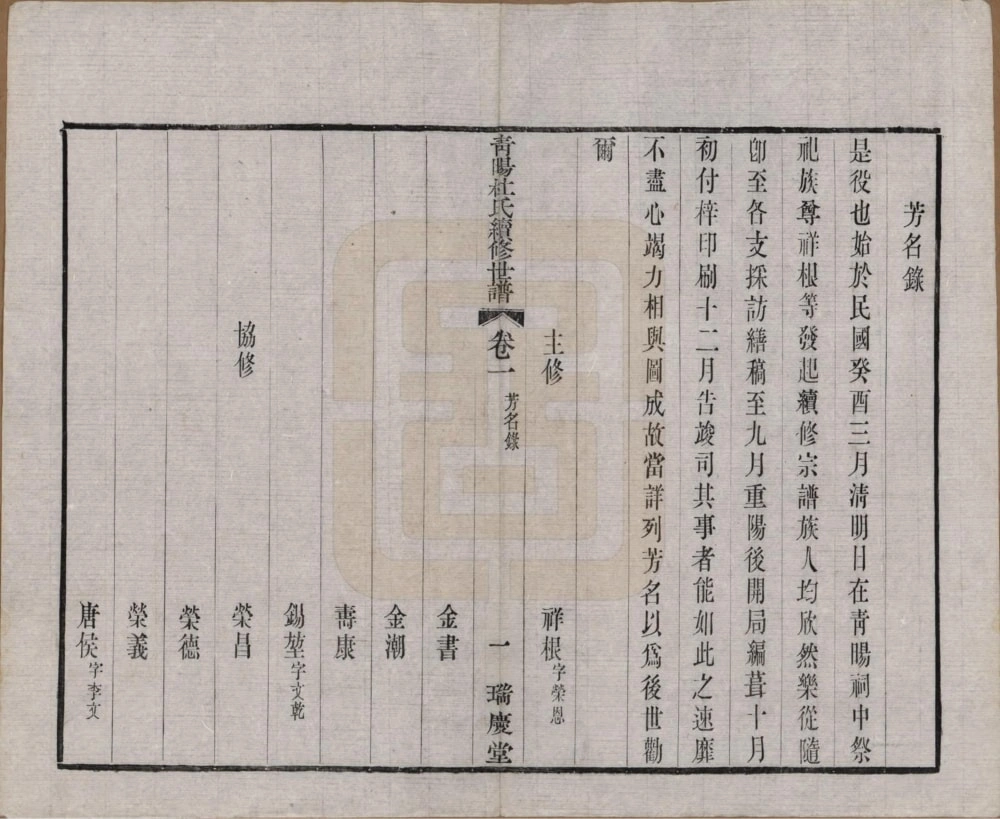 芳名錄
是役也始於民國癸酉三月清明日在青暘祠中祭
祀族尊祥根等發起續修宗譜族人均欣然樂從隨
卽至各支採訪繕稿至九月重陽後開局編葺十月
初付梓印刷十二月告竣司其事者能如此之速靡
不盡心竭力相與圖成故當詳列芳名以爲後世勸
爾
主修 祥根字榮恩
青暘杜氏續修世譜 卷一 芳名錄 一 瑞慶堂
金書
金潮
壽康
錫堃字文乾
協修 榮昌
榮德
榮義
唐侯字李文